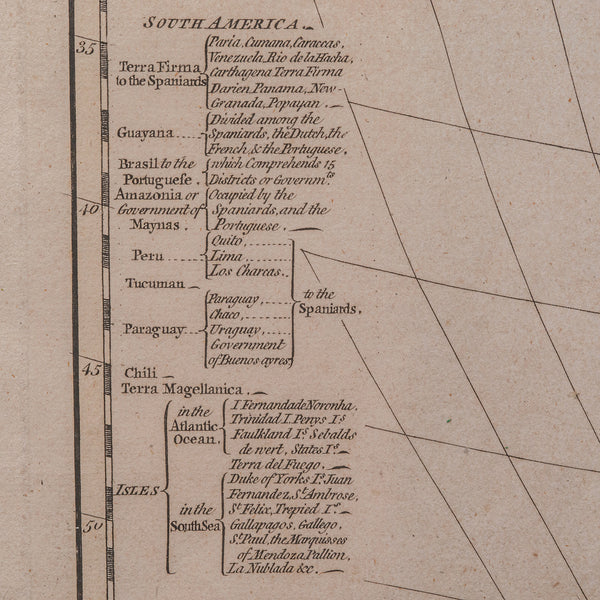 SOUTH AMERICA.
35
Terra Firma to the Spaniards
Paria, Cumana, Caraccas,
Venezuela, Rio de la Hacha,
Carthagena Terra Firma
Darien Panama, New-
Granada, Popayan.
Guayana
Divided among the
Spaniards, the Dutch, the
French, & the Portuguese.
Brasil to the
Portuguese.
which Comprehends 15
Districts or Governmts.
40
Amazonia or
Government of
Maynas.
Occupied by the
Spaniards, and the
Portuguese.
Peru
Quito,
Lima,
Los Charcas.
Tucuman
Paraguay
Paraguay,
Chaco,
Uraguay,
Government
of Buenos ayres
to the
Spaniards.
45
Chili
Terra Magellanica.
ISLES
in the
Atlantic
Ocean.
I. Fernanda de Noronha,
Trinidad I. Penys Is
Faulkland Is. Sebalds
de wert, States Is.
Terra del Fuego.
50
in the
South Sea
Duke of Yorks Id. Juan
Fernandez, St. Ambrose,
St. Felix, Trepied Is.
Gallapagos, Gallego,
St. Paul, the Marquisses
of Mendoza, Pallion,
La Nublada &c.